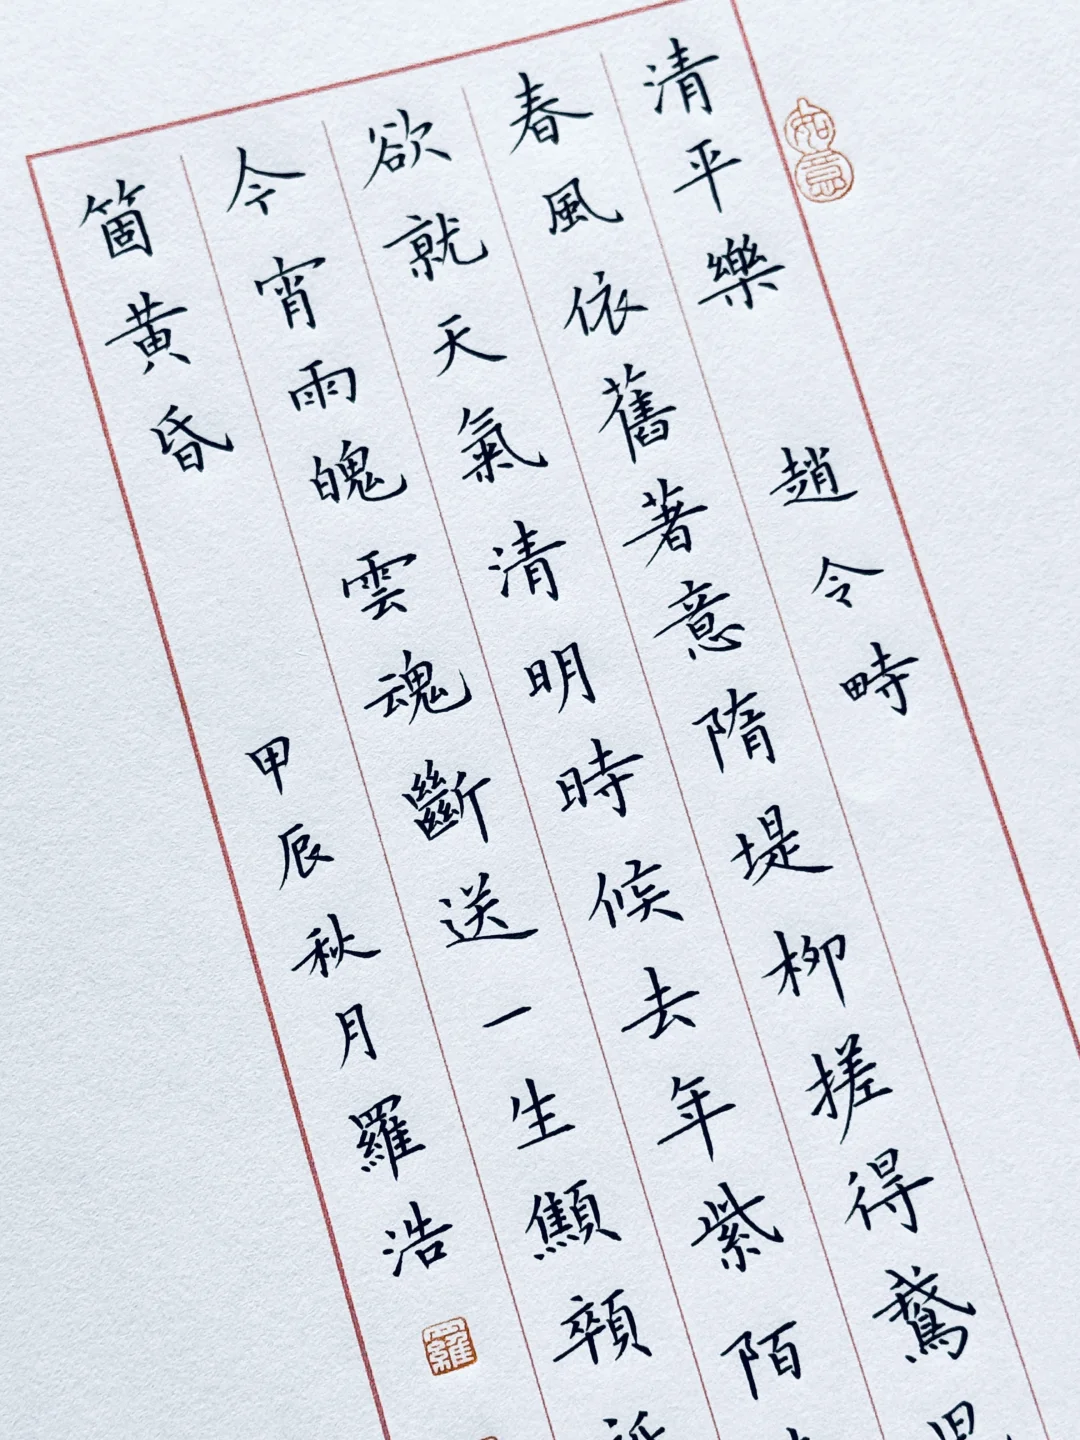 如意
清平樂 趙令畤
春風依舊著意隋堤柳搓得鵞兒
欲就天氣清明時候去年紫陌
今宵雨魄雲魂斷送一生顦顇
箇黃昏
甲辰秋月羅浩
羅